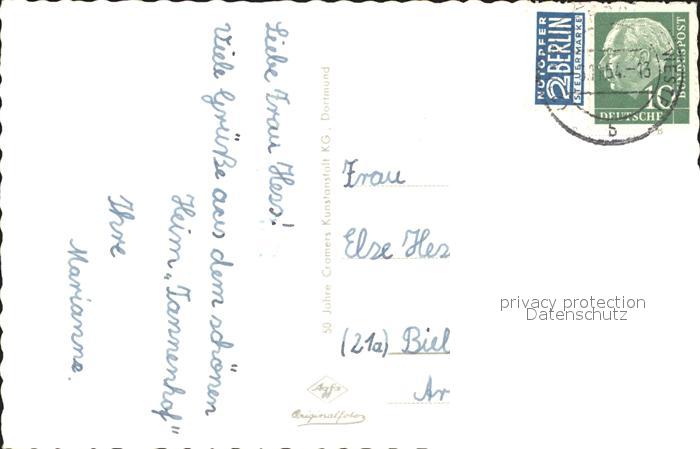 Liebe Frau Hess!
Viele Grüße aus dem schönen
Heim „Tannenhof"
Ihre
Marianne.
50 Jahre Cramers Kunstanstalt KG, Dortmund
NOTOPFER
2 BERLIN
STEUERMARKE
DEUTSCHE
BUNDESPOST
10
54.-18
b
Frau
Else Hes
(21a) Biel
Ar
privacy protection
Datenschutz
Agfa
Originalfoto